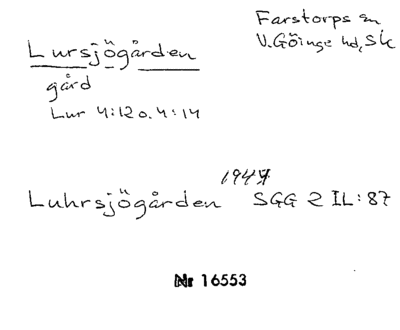 Farstorps sn
V. Göinge hd, Sk
Lursjögården
gård
Lur 4:12 o. 4:14
Luhrsjögården SGG 2 IL: 87
Nr 16553